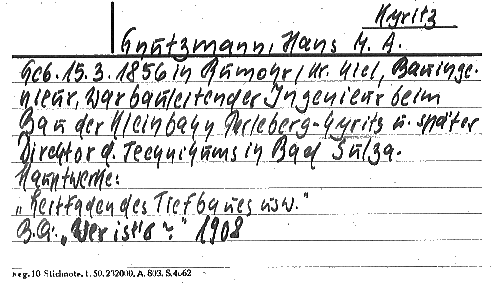 Kyritz
Gnutzmann, Hans H. A.
Geb. 15.3.1856 in Rumohr, Kr. Kiel, Bauinge-
nieur, War bauleitender Ingenieur beim
Bau der Kleinbahn Perleberg-Kyritz u. später
Direktor d. Technikums in Bad Sulza.
Hauptwerke:
„Leitfaden des Tiefbaues usw."
B.Q.: „Wer ist's?" 1908
Reg. 10 Stichnote. t. 50. 232000. A. 803. S. 4062